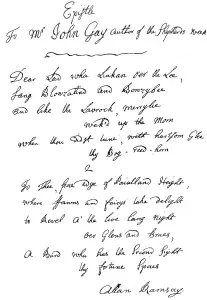 Epistle
To Mr John Gay Author of the Shepherds week
Dear Lad wha linkan o'er the Lee,
Sang Blowzalind and Bowzybe
And like the Lavrock, merrylie
wak'd up the Morn
When thou didst tune, with heartsom Glee
thy Bog-reed-horn
2
To thee frae Edge of
Where Fawns and fairys take delight
to Revel a' the live lang Night
O'er Glens and Braes,
A Bard wha has the Second Sight
thy fortune Spaes
Allan Ramsay